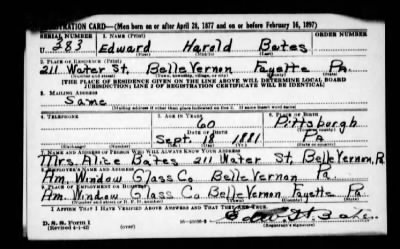 REGISTRATION CARD—(Men born on or after April 28, 1877 and on or before February 16, 1897)
SERIAL NUMBER 1. NAME (Print) ORDER NUMBER
U 383 Edward Harold Bates
(First) (Middle) (Last)
2. PLACE OF RESIDENCE (Print)
211 Water St. Belle Vernon Fayette Pa.
(Number and street) (Town, township, village, or city) (County) (State)
[THE PLACE OF RESIDENCE GIVEN ON THE LINE ABOVE WILL DETERMINE LOCAL BOARD
JURISDICTION; LINE 2 OF REGISTRATION CERTIFICATE WILL BE IDENTICAL]
3. MAILING ADDRESS
Same
[Mailing address if other than place indicated on line 2. If same insert word same]
4. TELEPHONE 5. AGE IN YEARS 6. PLACE OF BIRTH
60 Pittsburgh
DATE OF BIRTH
Sept. 18 1881 Pa
(Exchange) (Number) (Mo.) (Day) (Yr.) (State or country)
7. NAME AND ADDRESS OF PERSON WHO WILL ALWAYS KNOW YOUR ADDRESS
Mrs. Alice Bates 211 Water St. Belle Vernon, Pa
8. EMPLOYER'S NAME AND ADDRESS
Am. Window Glass Co. Belle Vernon Pa
9. PLACE OF EMPLOYMENT OR BUSINESS
Am. Window Glass Co Belle Vernon Fayette Pa.
(Number and street or R. F. D. number) (Town) (County) (State)
I AFFIRM THAT I HAVE VERIFIED ABOVE ANSWERS AND THAT THEY ARE TRUE.
D. S. S. Form 1
(Revised 4-1-42) (over) (Registrant's signature)